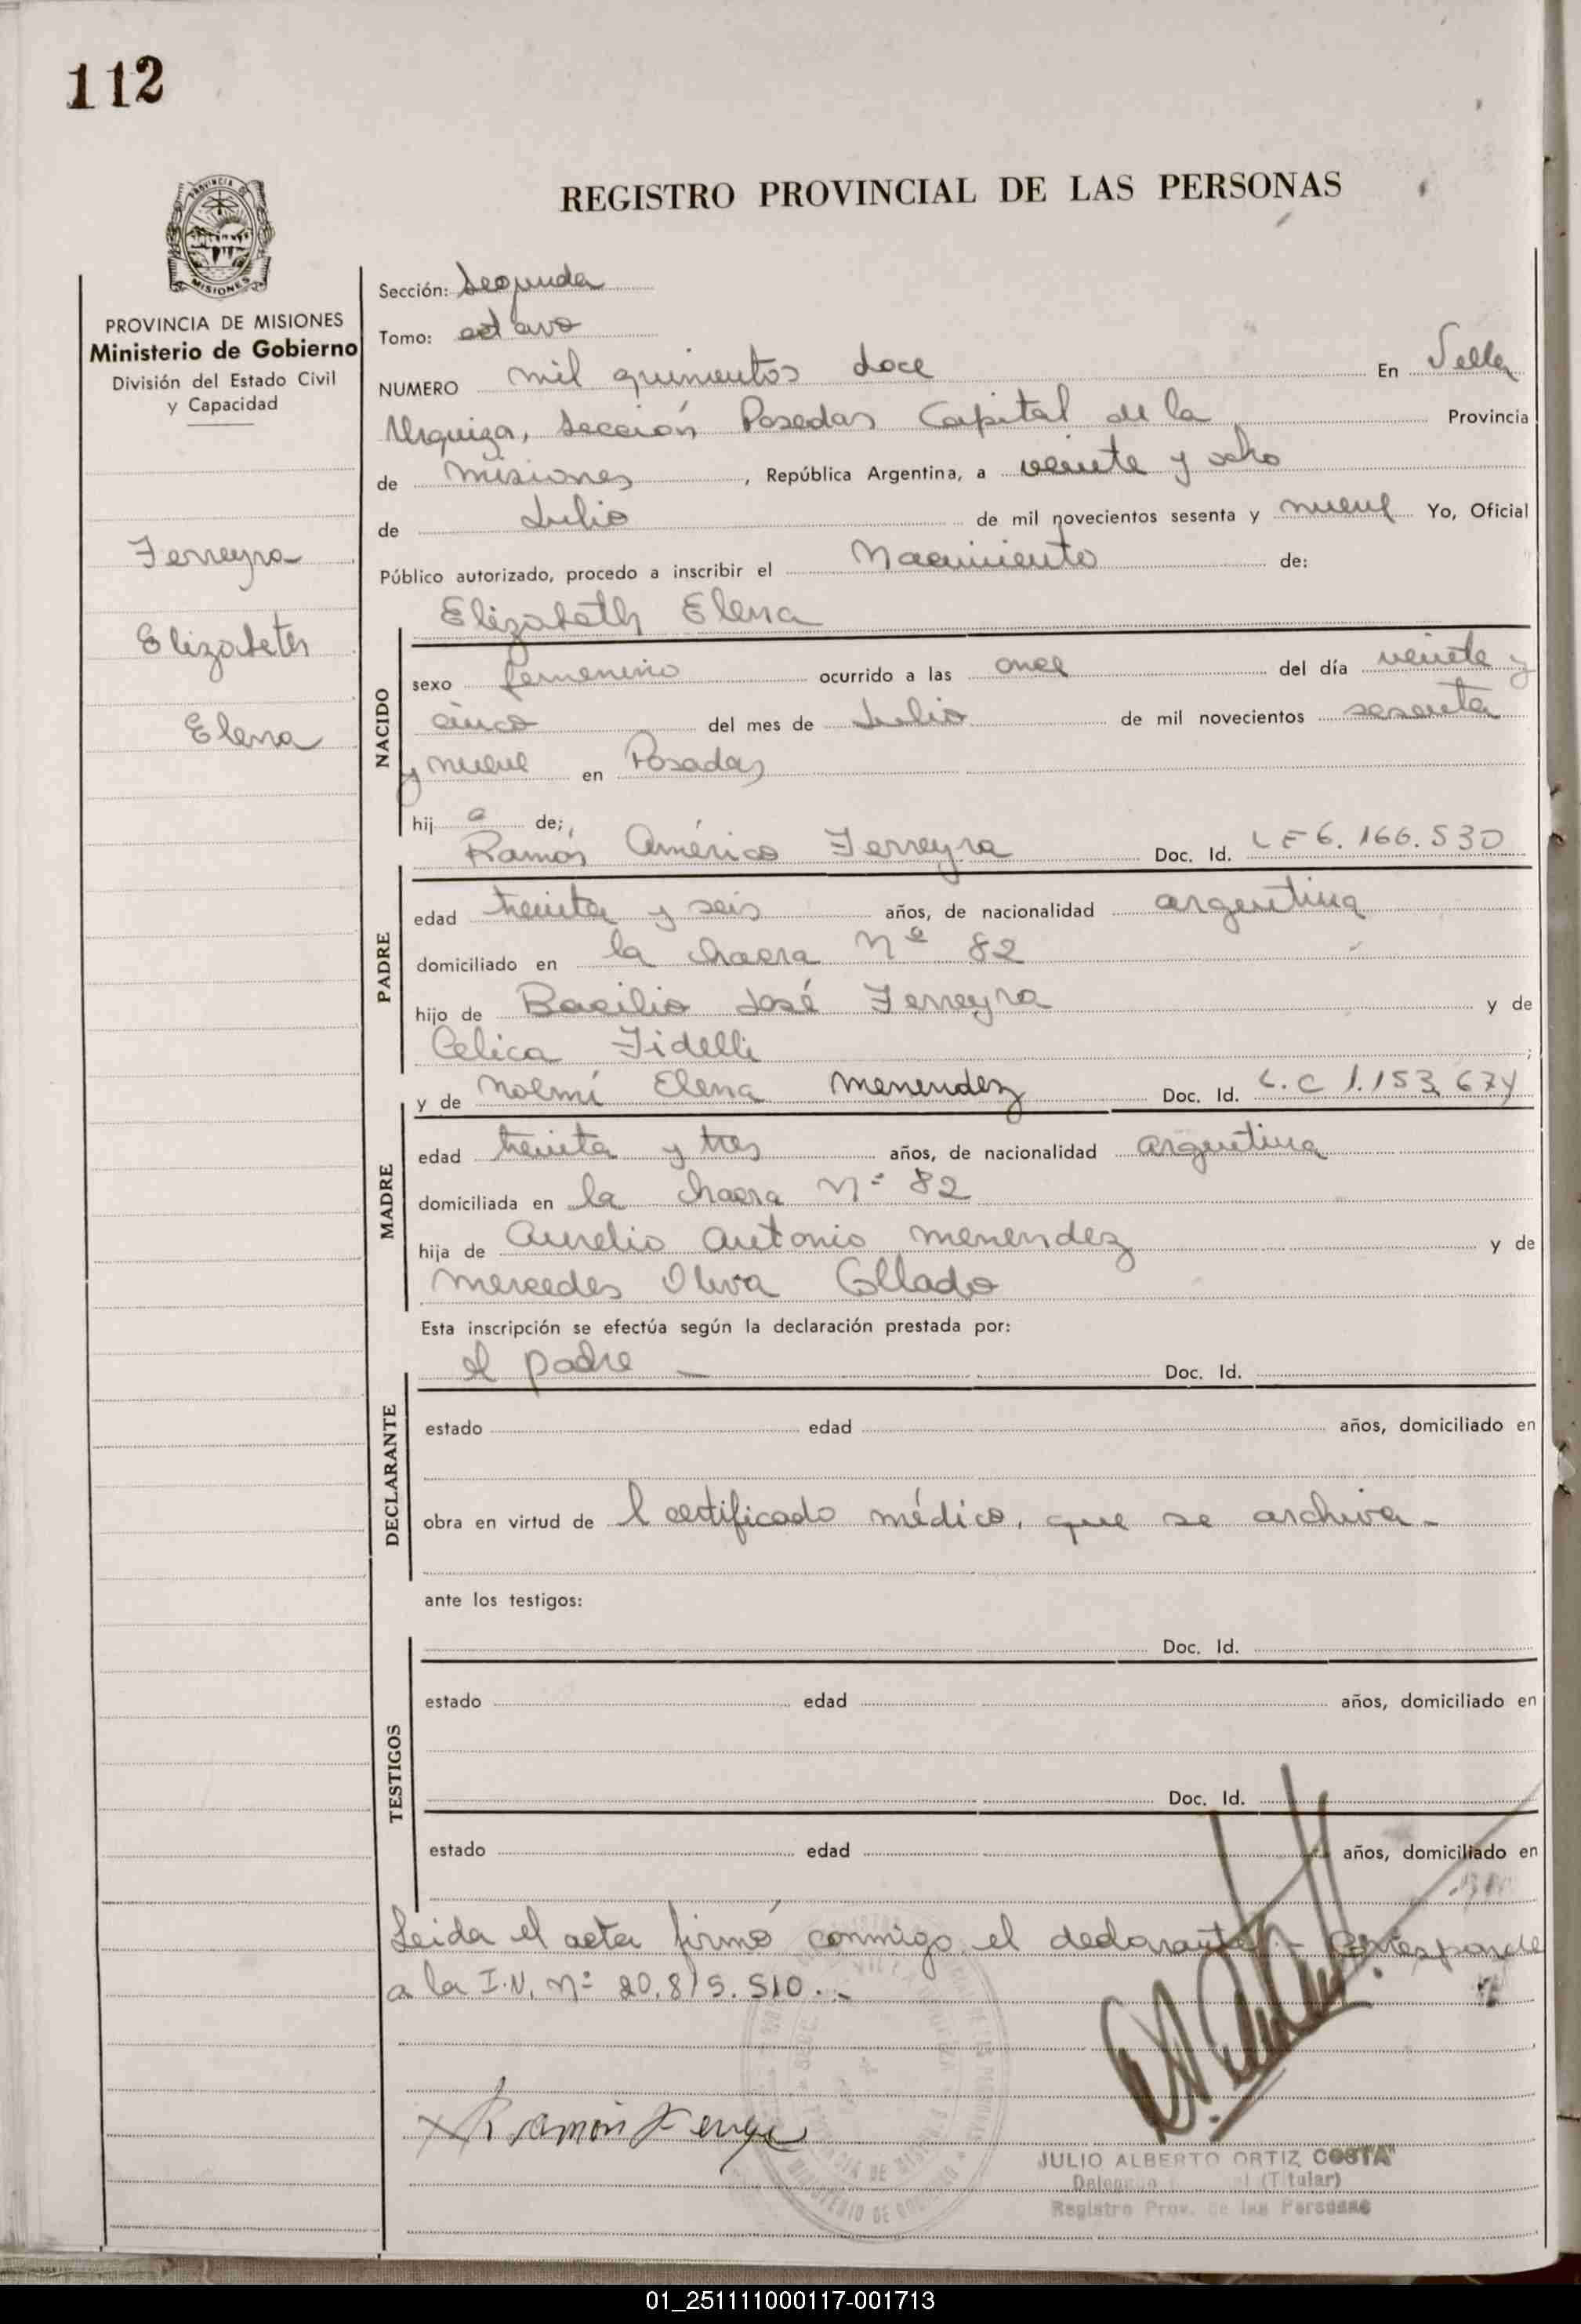 112
REGISTRO PROVINCIAL DE LAS PERSONAS
PROVINCIA DE MISIONES
Ministerio de Gobierno
División del Estado Civil
y Capacidad
Ferreyra
Elizabeth
Elena
Sección: Segunda
Tomo: octavo
NUMERO mil quinientos doce En Villa
Urquiza, Sección Posadas Capital de la Provincia
de Misiones, República Argentina, a veinte y ocho
de Julio de mil novecientos sesenta y nueve Yo, Oficial
Público autorizado, procedo a inscribir el Nacimiento de:
Elizabeth Elena
NACIDO
sexo femenino ocurrido a las once del día veinte y
cinco del mes de Julio de mil novecientos sesenta
y nueve en Posadas
hij a de;
Ramón Américo Ferreyra Doc. Id. LE 6.166.530
PADRE
edad treinta y seis años, de nacionalidad argentina
domiciliado en la chacra Nº 82
hijo de Basilio José Ferreyra y de
Celica Fidelli;
y de Noemí Elena Menendez Doc. Id. L.C 1.153.674
MADRE
edad treinta y tres años, de nacionalidad argentina
domiciliada en la chacra Nº 82
hija de Aurelio Antonio Menendez y de
Mercedes Oliva Collado
Esta inscripción se efectúa según la declaración prestada por:
el padre — Doc. Id.
DECLARANTE
estado edad años, domiciliado en
obra en virtud de l certificado médico, que se archiva.-
ante los testigos:
Doc. Id.
TESTIGOS
estado edad años, domiciliado en
Doc. Id.
estado edad años, domiciliado en
Leida el acta firmó conmigo el declarante.- Corresponde
a la I.N. Nº 20.815.510.-
x Ramón Ferreyra
JULIO ALBERTO ORTIZ COSTA
(Titular)
Registro Prov. de las Personas
01_251111000117-001713